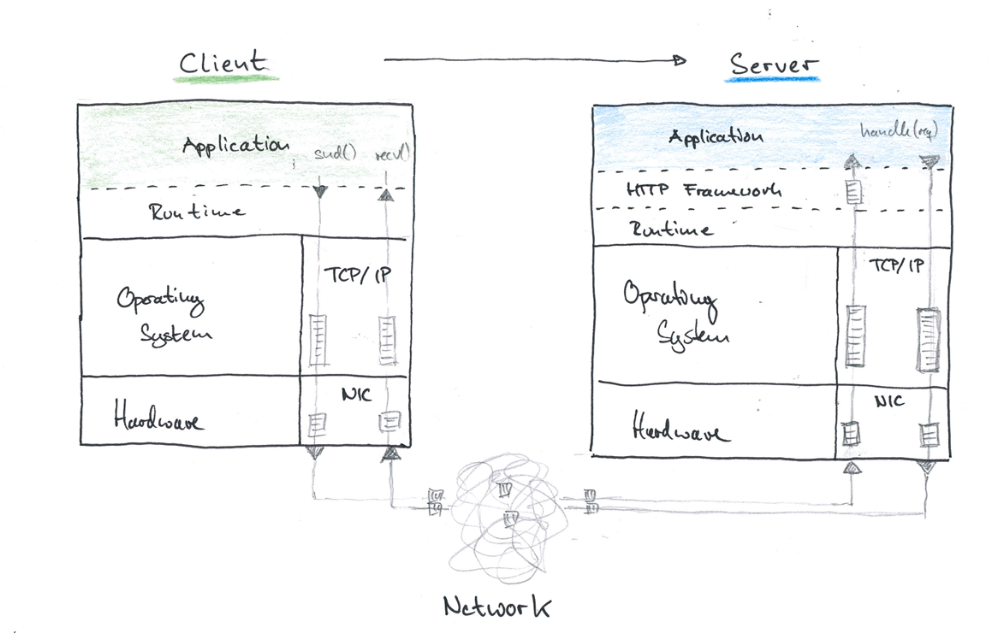 Client
Server
Application
send()
recv()
Runtime
TCP/IP
Operating
System
NIC
Hardware
Application
handle(req)
HTTP Framework
Runtime
TCP/IP
Operating
System
NIC
Hardware
Network